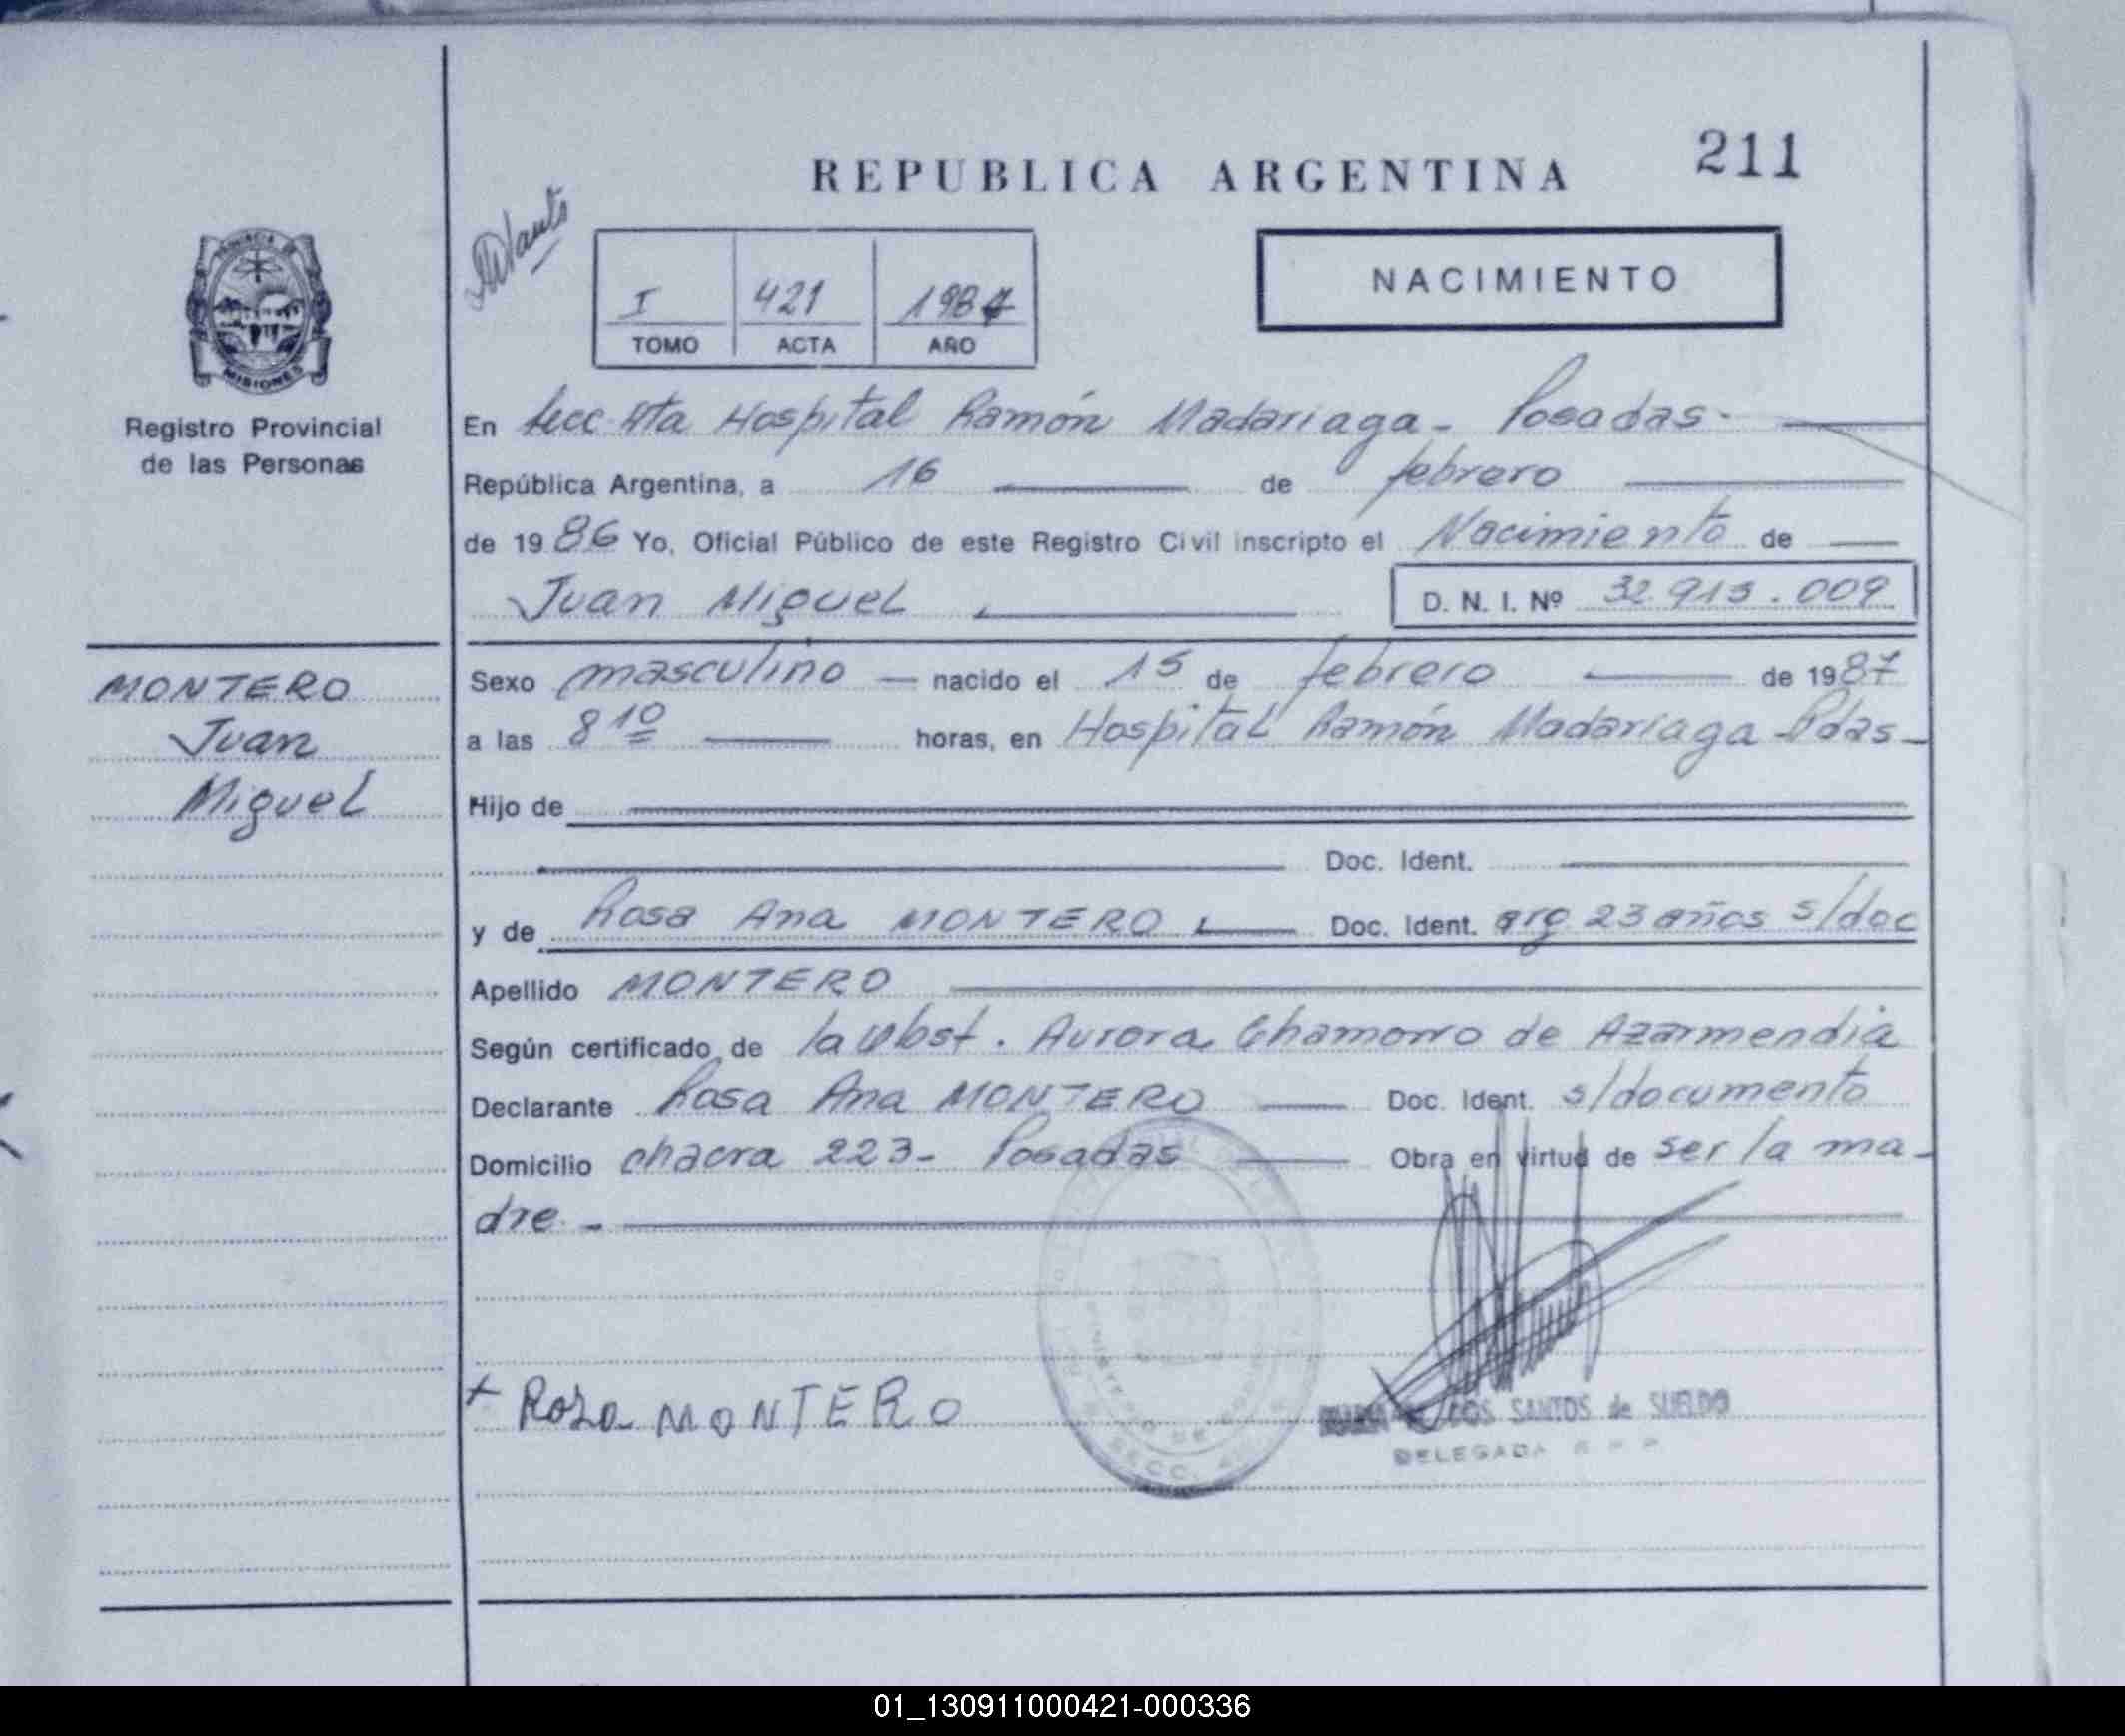 211
REPUBLICA ARGENTINA
NACIMIENTO
I 421 1987
TOMO ACTA AÑO
PROVINCIA DE
MISIONES
Registro Provincial
de las Personas
En Secc 4ta Hospital Ramón Madariaga - Posadas -
República Argentina, a 16 de febrero
de 1986 Yo, Oficial Público de este Registro Civil inscripto el Nacimiento de
Juan Miguel D. N. I. Nº 32.913.009
MONTERO
Juan
Miguel
Sexo masculino nacido el 15 de febrero de 1987
a las 8 10 horas, en Hospital Ramón Madariaga Pdas -
Hijo de
Doc. Ident.
y de Rosa Ana MONTERO Doc. Ident. arg 23 años s/doc
Apellido MONTERO
Según certificado de la Obst. Aurora Chamorro de Azarmendia
Declarante Rosa Ana MONTERO Doc. Ident. s/documento
Domicilio chacra 223 - Posadas Obra en virtud de ser la ma-
dre -
+ Rosa MONTERO
DOS SANTOS de SUELDO
DELEGADA
SECC.
01_130911000421-000336